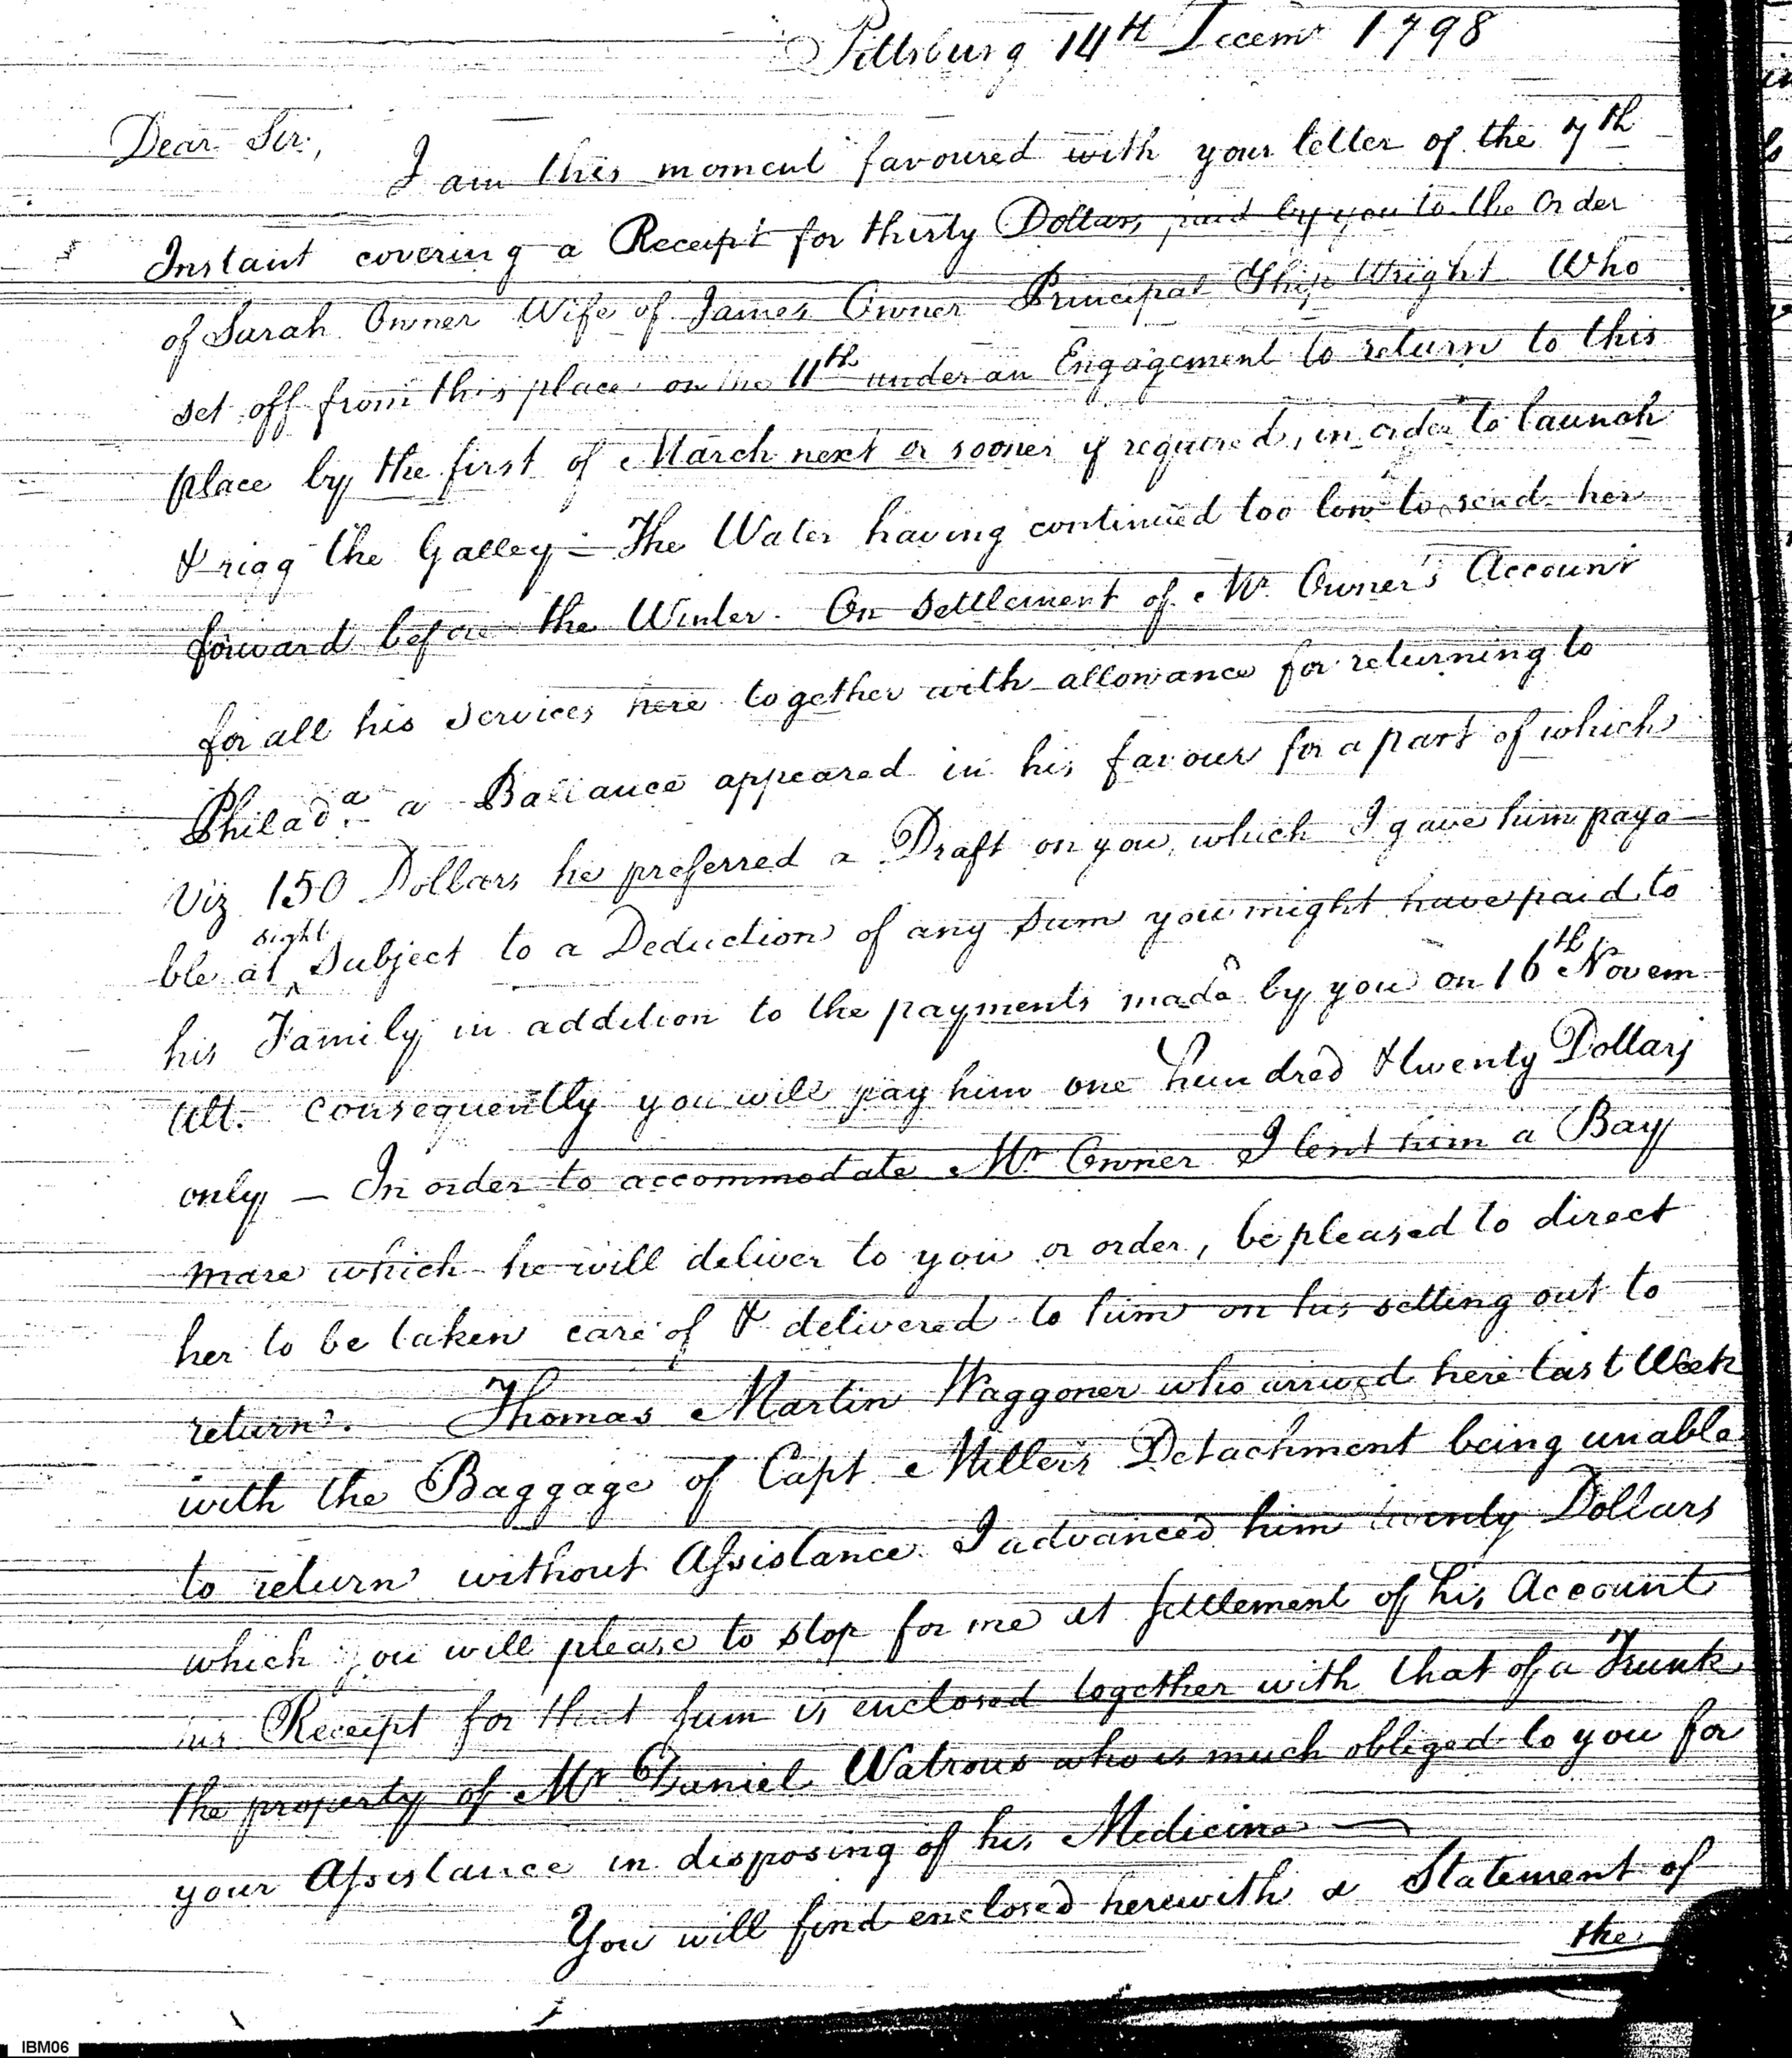 Pittsburg 14th Decemr 1798
Dear Sir,
I am this moment favoured with your letter of the 7th
Instant covering a Receipt for thirty Dollars paid by you to the Order
of Sarah Owner Wife of James Owner Principal Ship Wright Who
set off from this place on the 11th under an Engagement to return to this
place by the first of March next or sooner if required, in order to launch
& rigg the Galley – The Water having continued too low to send her
forward before the Winter. On Settlement of Mr. Owner's Account
for all his Services here together with allowance for returning to
Philada. a Ballance appeared in his favour for a part of which
Viz 150 Dollars he preferred a Draft on you, which I gave him paya-
sight
ble at ^ Subject to a Deduction of any Sum you might have paid to
his Family in addition to the payments made by you on 16th Novem
Ult. consequently you will pay him one hundred & twenty Dollars
only — In order to accommodate Mr Owner I lent him a Bay
mare which he will deliver to you or order, be pleased to direct
her to be taken care of & delivered to him on his setting out to
return. Thomas Martin Waggoner who arrived here last Week
with the Baggage of Capt Millers Detachment being unable
to return without Assistance I advanced him twenty Dollars
which you will please to stop for me at settlement of his Account
his Receipt for that sum is enclosed together with that of a Trunk
the property of Mr Daniel Watrous who is much obliged to you for
your Assistance in disposing of his Medicine —
You will find enclosed herewith a Statement of
the
IBM06